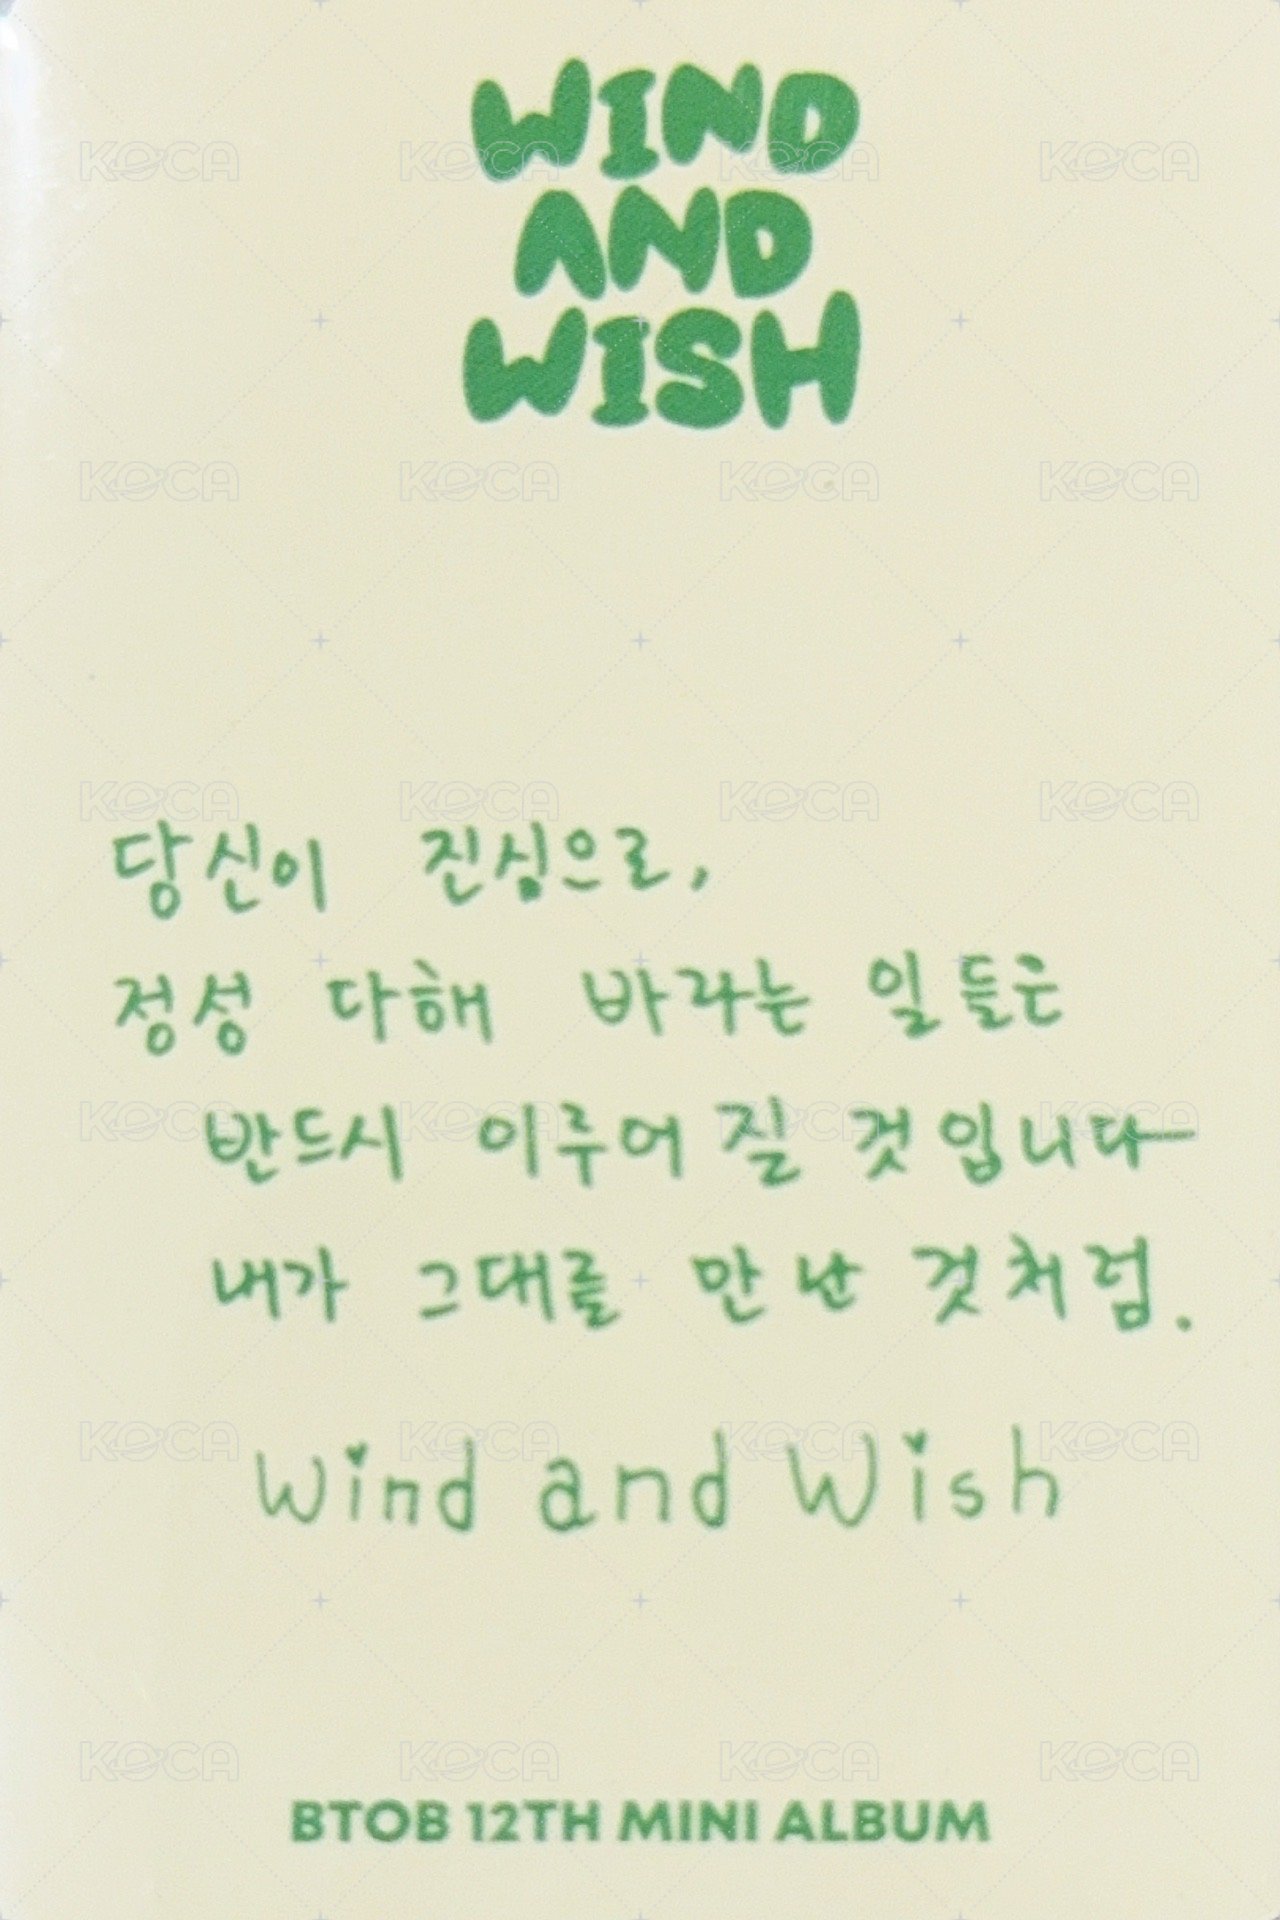 WIND
AND
WISH
당신이 진심으로,
정성 다해 바라는 일들은
반드시 이루어 질 것입니다
내가 그대를 만난 것처럼.
Wind and Wish
BTOB 12TH MINI ALBUM
KOCA KOCA KOCA KOCA
KOCA KOCA KOCA KOCA
KOCA KOCA KOCA KOCA
KOCA KOCA KOCA KOCA
KOCA KOCA KOCA KOCA
KOCA KOCA KOCA KOCA